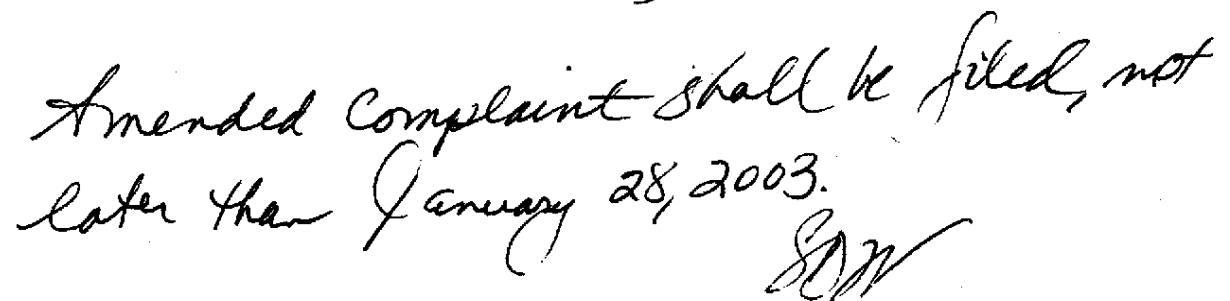 Amended Complaint shall be filed, not
later than January 28, 2003.